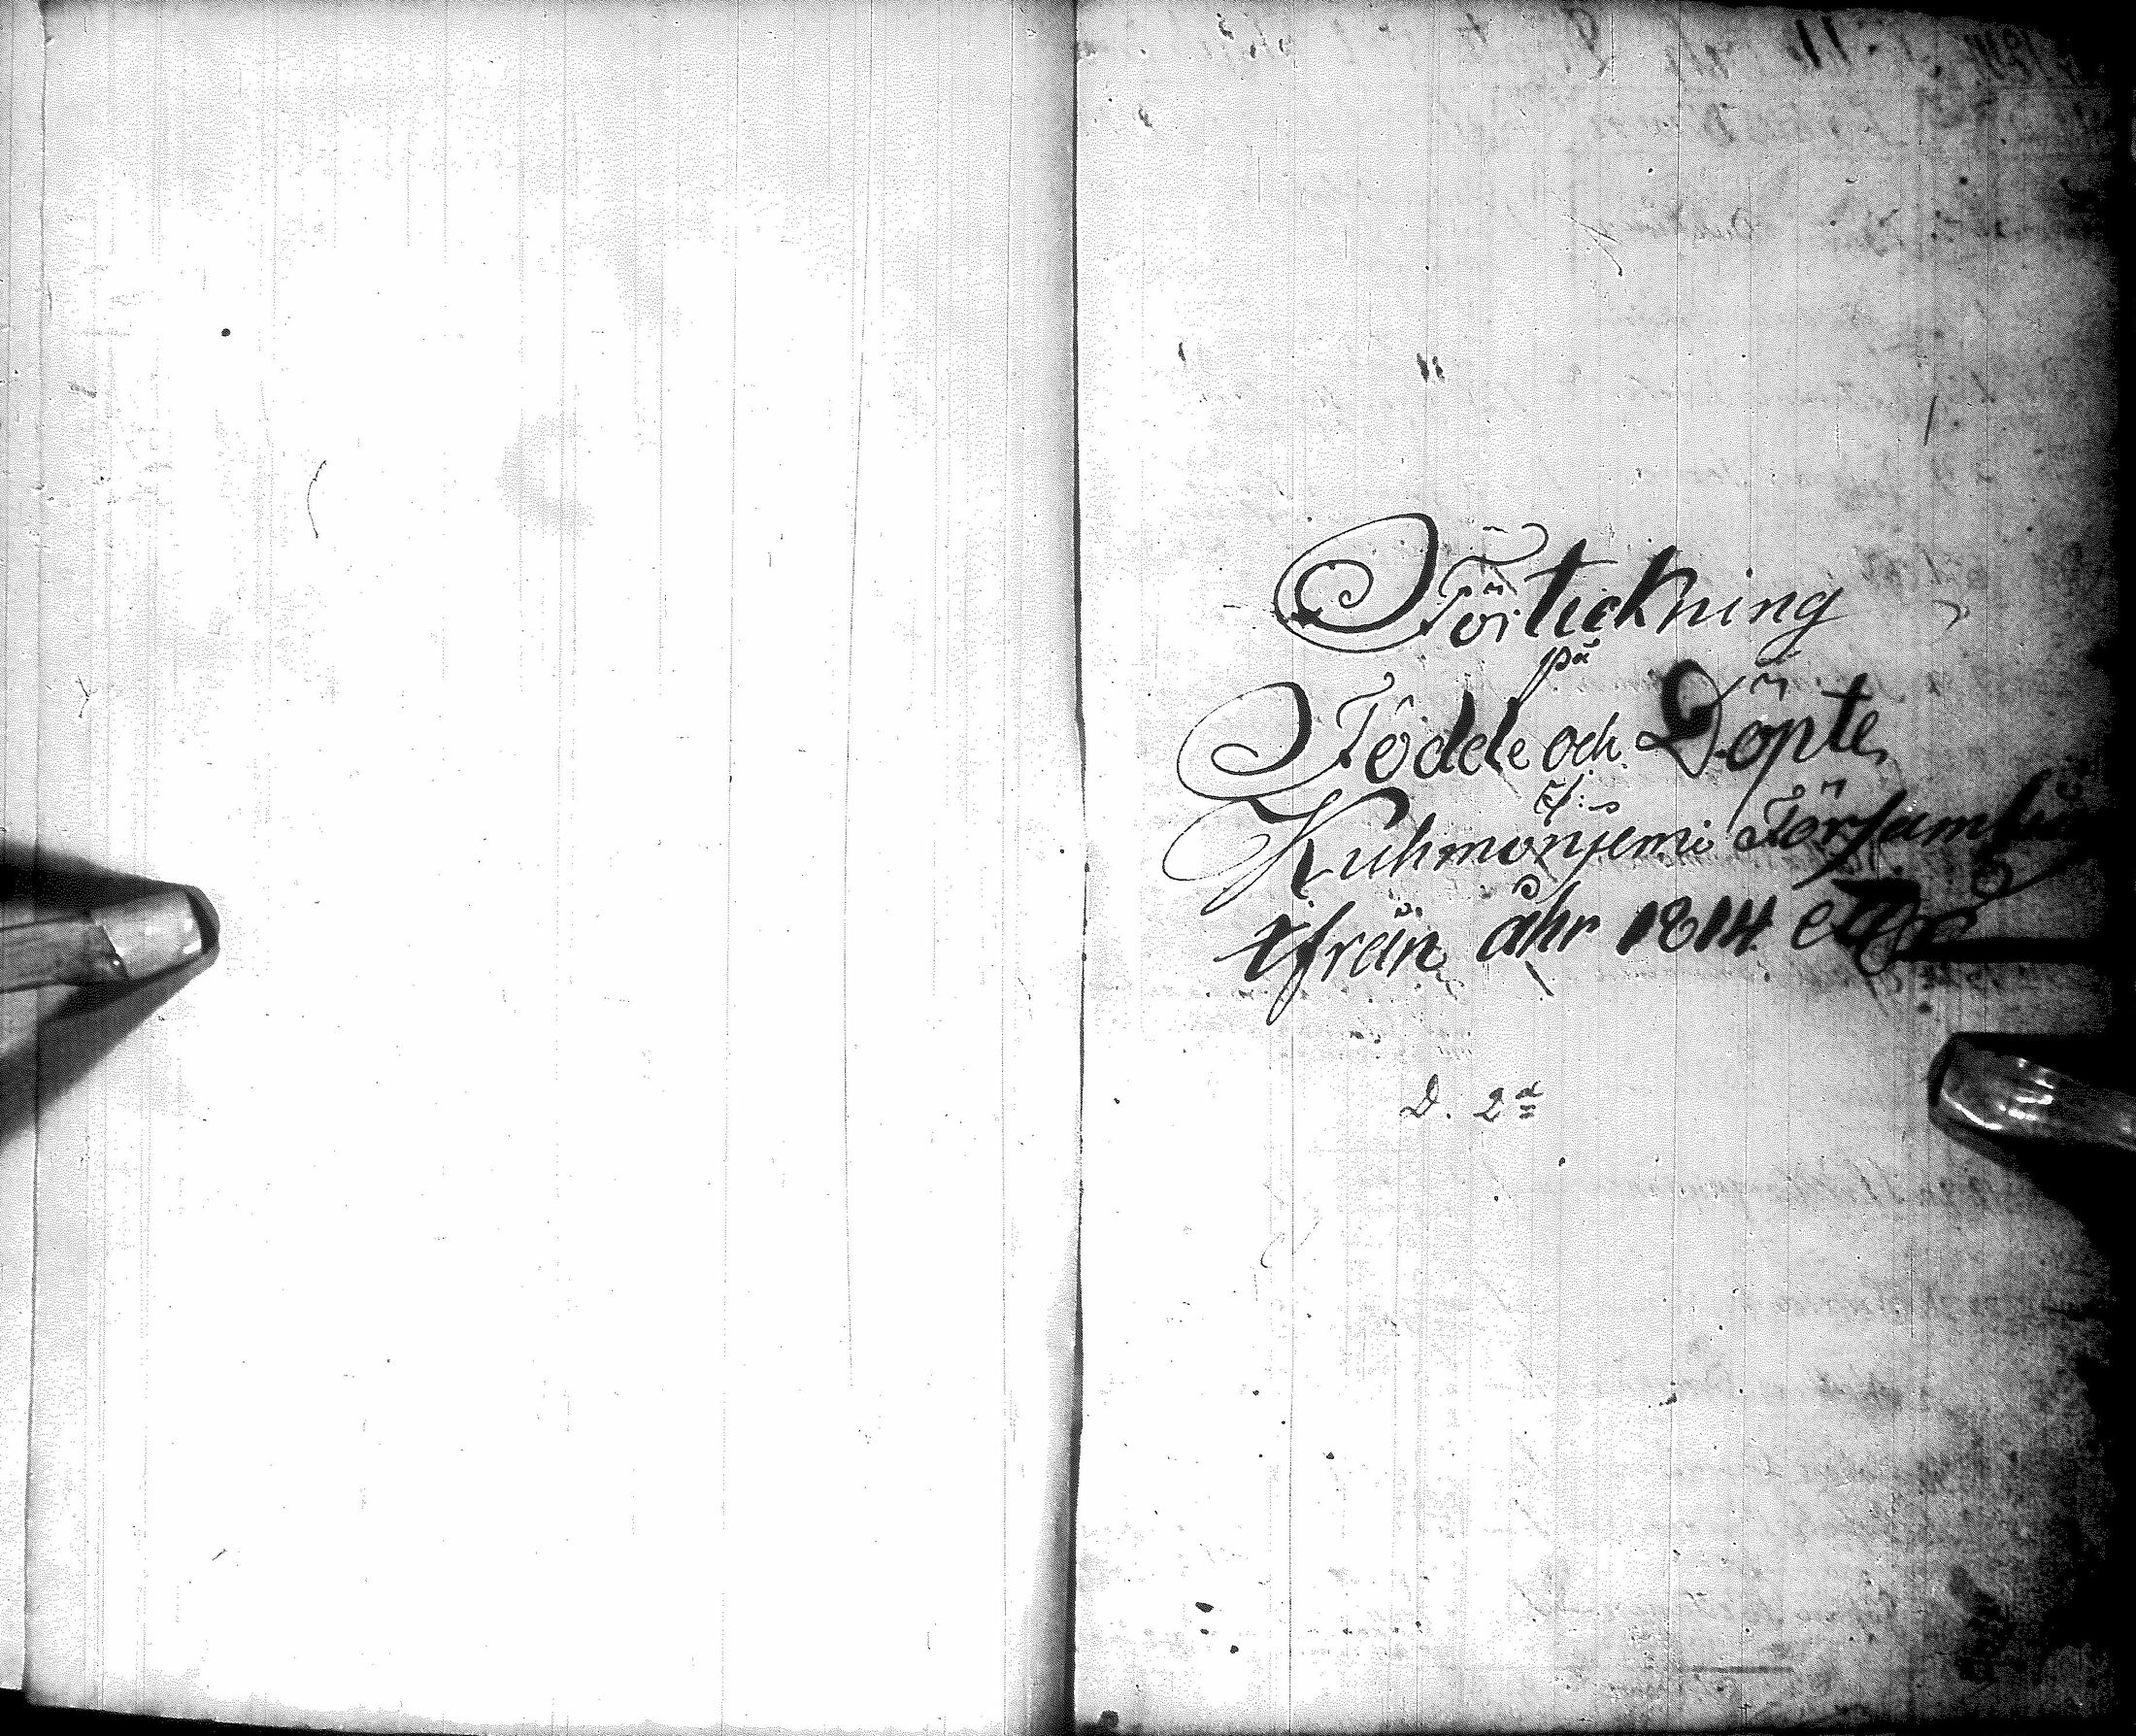 Förtickning
på
Födde och Döpte,
i
Kuhmonjemi Församling
ifrån åhr 1814
D. 2a